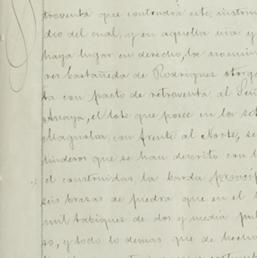 troventa que contendrá este instrumen
dio del cual, y en aquella via y
haya lugar en derecho, la
Castañeda de Rodriguez otorga
ta con pacto de retroventa al Señ
Anaya, el lote que posee en la
Magnolia con frente al Norte,
linderos que se han descrito con
el construidas la barda
seis brazas de piedra que en el
mil tabiques de dos y media pul
so, y todo lo demas que de hecho